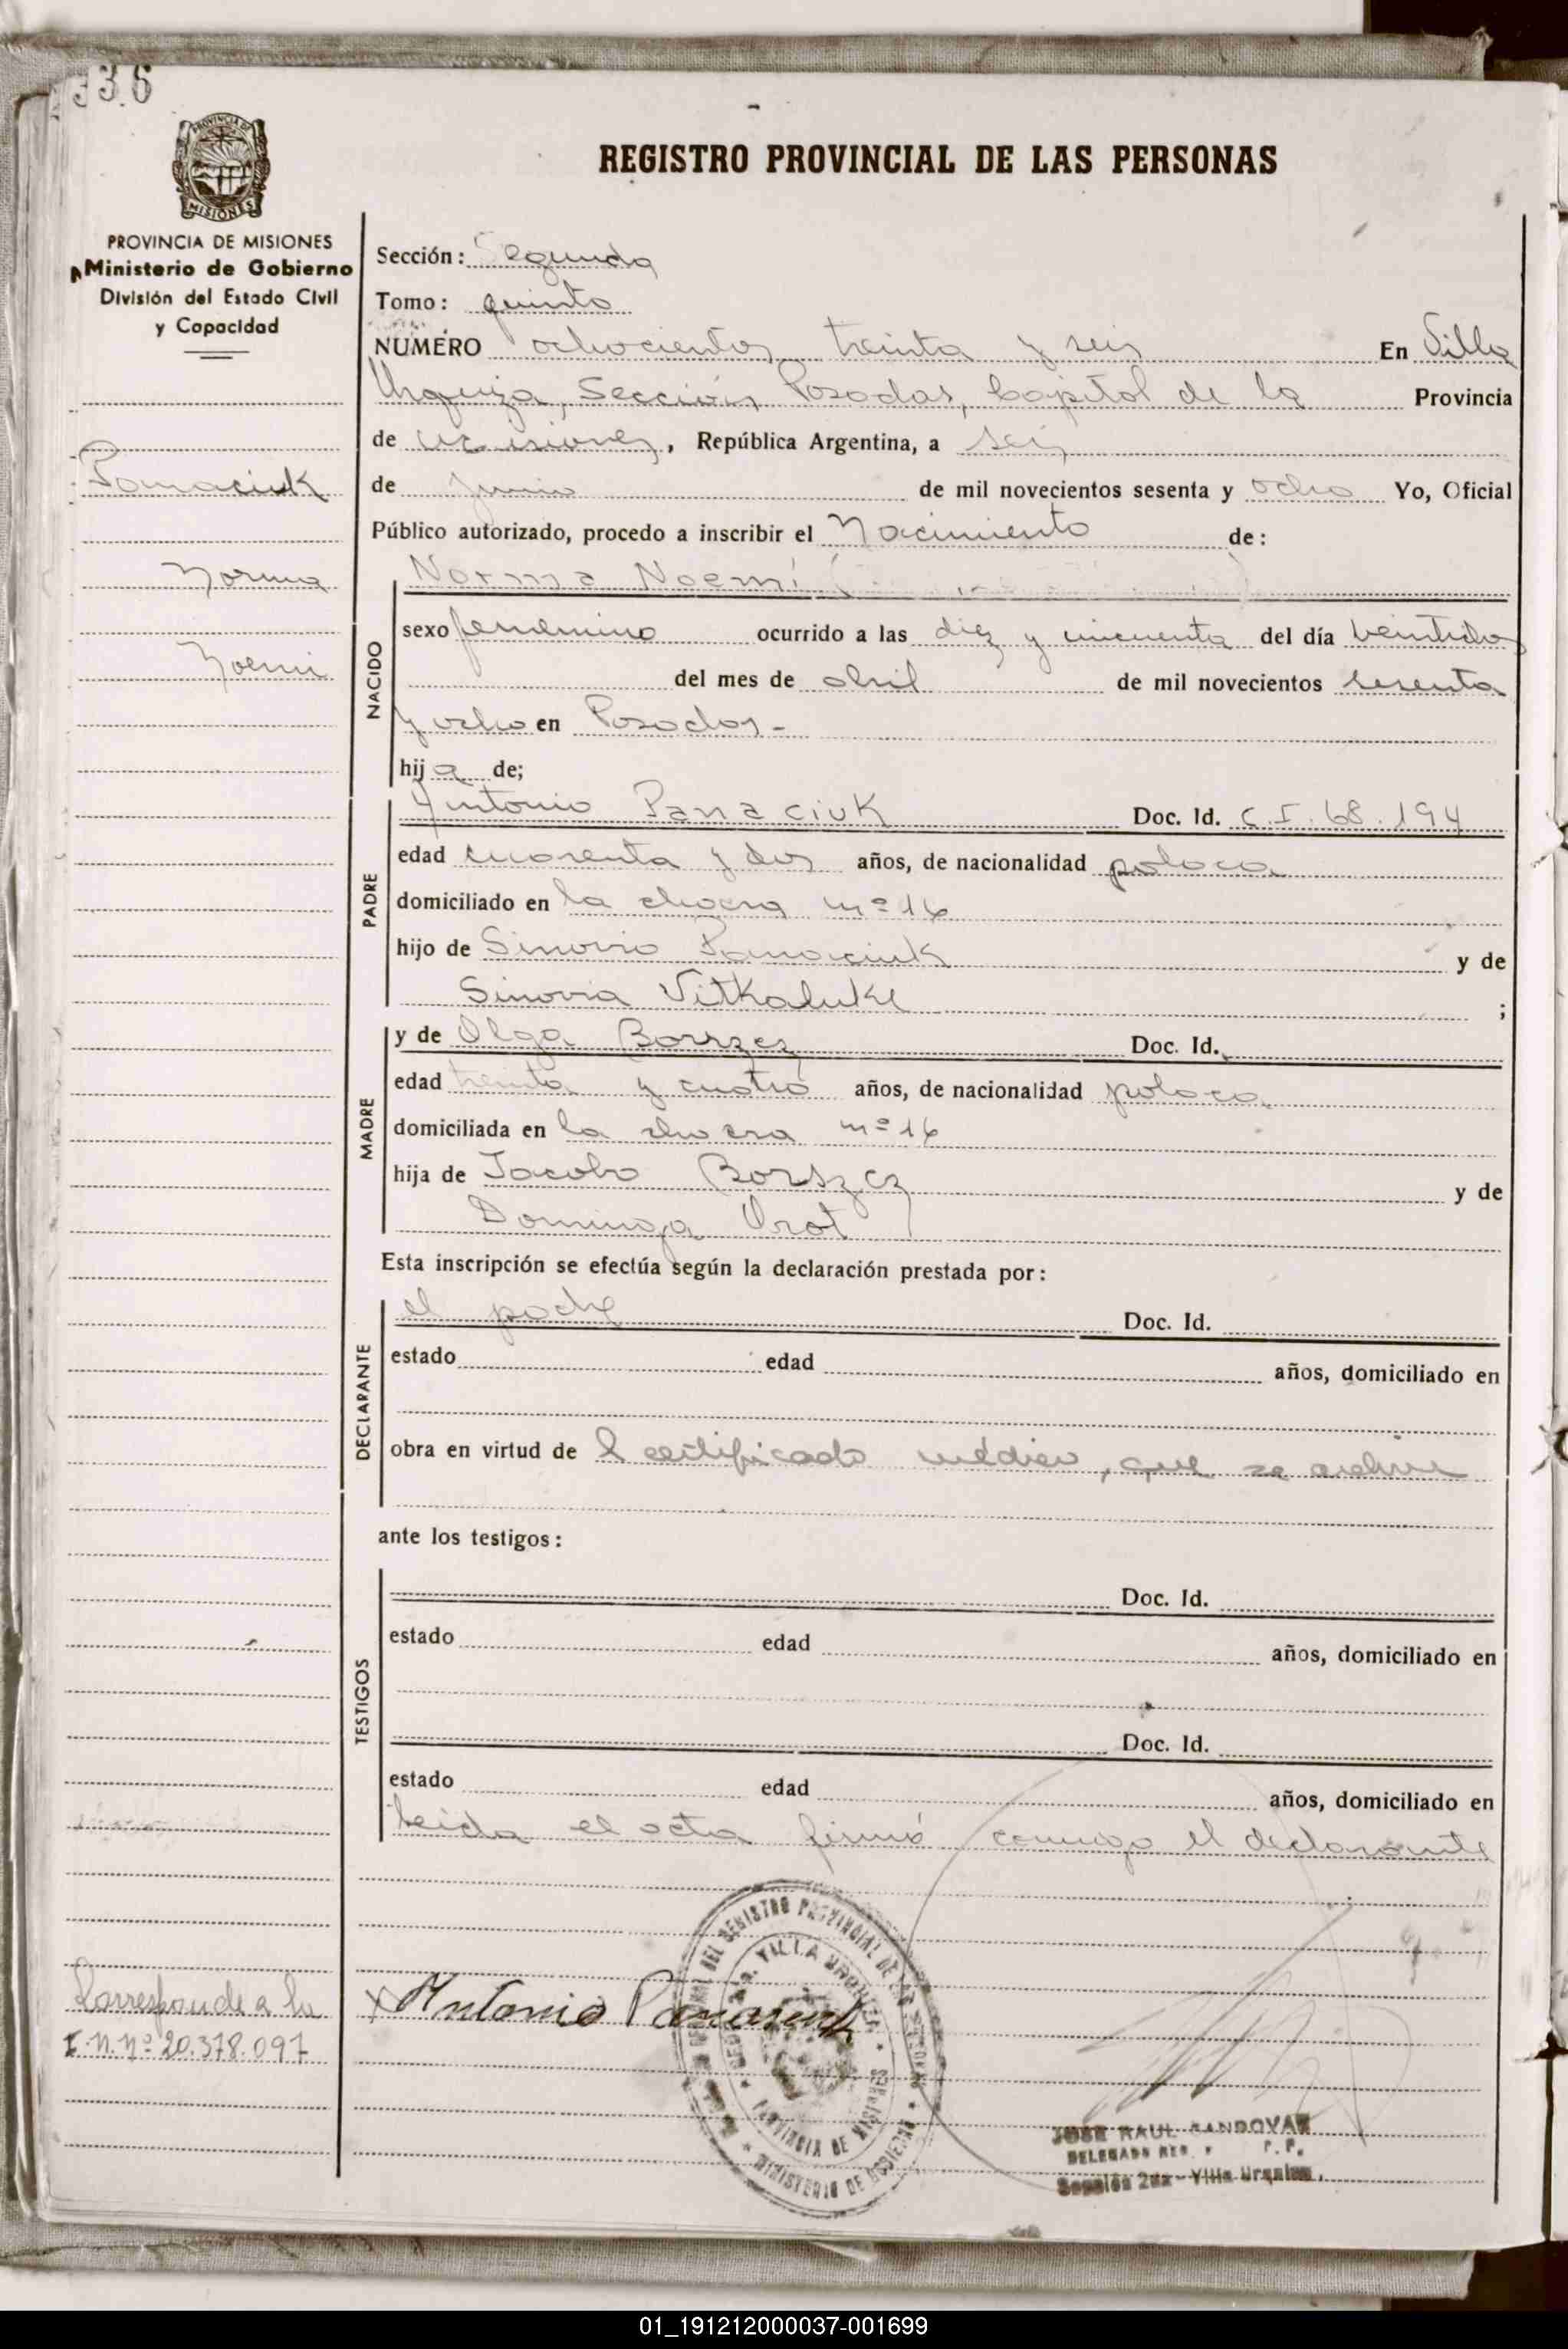 336
PROVINCIA DE MISIONES
MISIONES
PROVINCIA DE MISIONES
Ministerio de Gobierno
División del Estado Civil
y Capacidad
Panaciuk
Norma
Noemi
REGISTRO PROVINCIAL DE LAS PERSONAS
Sección: Segunda
Tomo: quinto
NÚMERO ochocientos treinta y seis En Villa
Urquiza, Sección Posadas, Capital de la Provincia
de Misiones, República Argentina, a seis
de junio de mil novecientos sesenta y ocho Yo, Oficial
Público autorizado, procedo a inscribir el Nacimiento de:
Norma Noemí
NACIDO
sexo femenino ocurrido a las diez y cincuenta del día veintiocho
del mes de abril de mil novecientos sesenta
y ocho en Posadas-
hija de;
PADRE
Antonio Panaciuk Doc. Id. C.I. 68.194
edad cuarenta y dos años, de nacionalidad polaca
domiciliado en la chacra nº 16
hijo de Sinovio Panaciuk y de
Sinovia Vitkaluke ;
MADRE
y de Olga Borszcz Doc. Id.
edad treinta y cuatro años, de nacionalidad polaca
domiciliada en la chacra nº 16
hija de Jacobo Borszcz y de
Dominga Orot
Esta inscripción se efectúa según la declaración prestada por:
DECLARANTE
el padre Doc. Id.
estado edad años, domiciliado en
obra en virtud de l certificado médico, que se archiva
ante los testigos:
TESTIGOS
Doc. Id.
estado edad años, domiciliado en
Doc. Id.
estado edad años, domiciliado en
Leida el acta firmó conmigo el declarante
Corresponde a la
I.N.Nº 20.378.097
Antonio Panaciuk
DEL REGISTRO PROVINCIAL DE LAS PERSONAS
VILLA URQUIZA
PROVINCIA DE MISIONES
MINISTERIO DE GOBIERNO
JOSE RAUL SANDOVAL
DELEGADO REG. P.P.
Sección 2da - Villa Urquiza
01_191212000037-001699